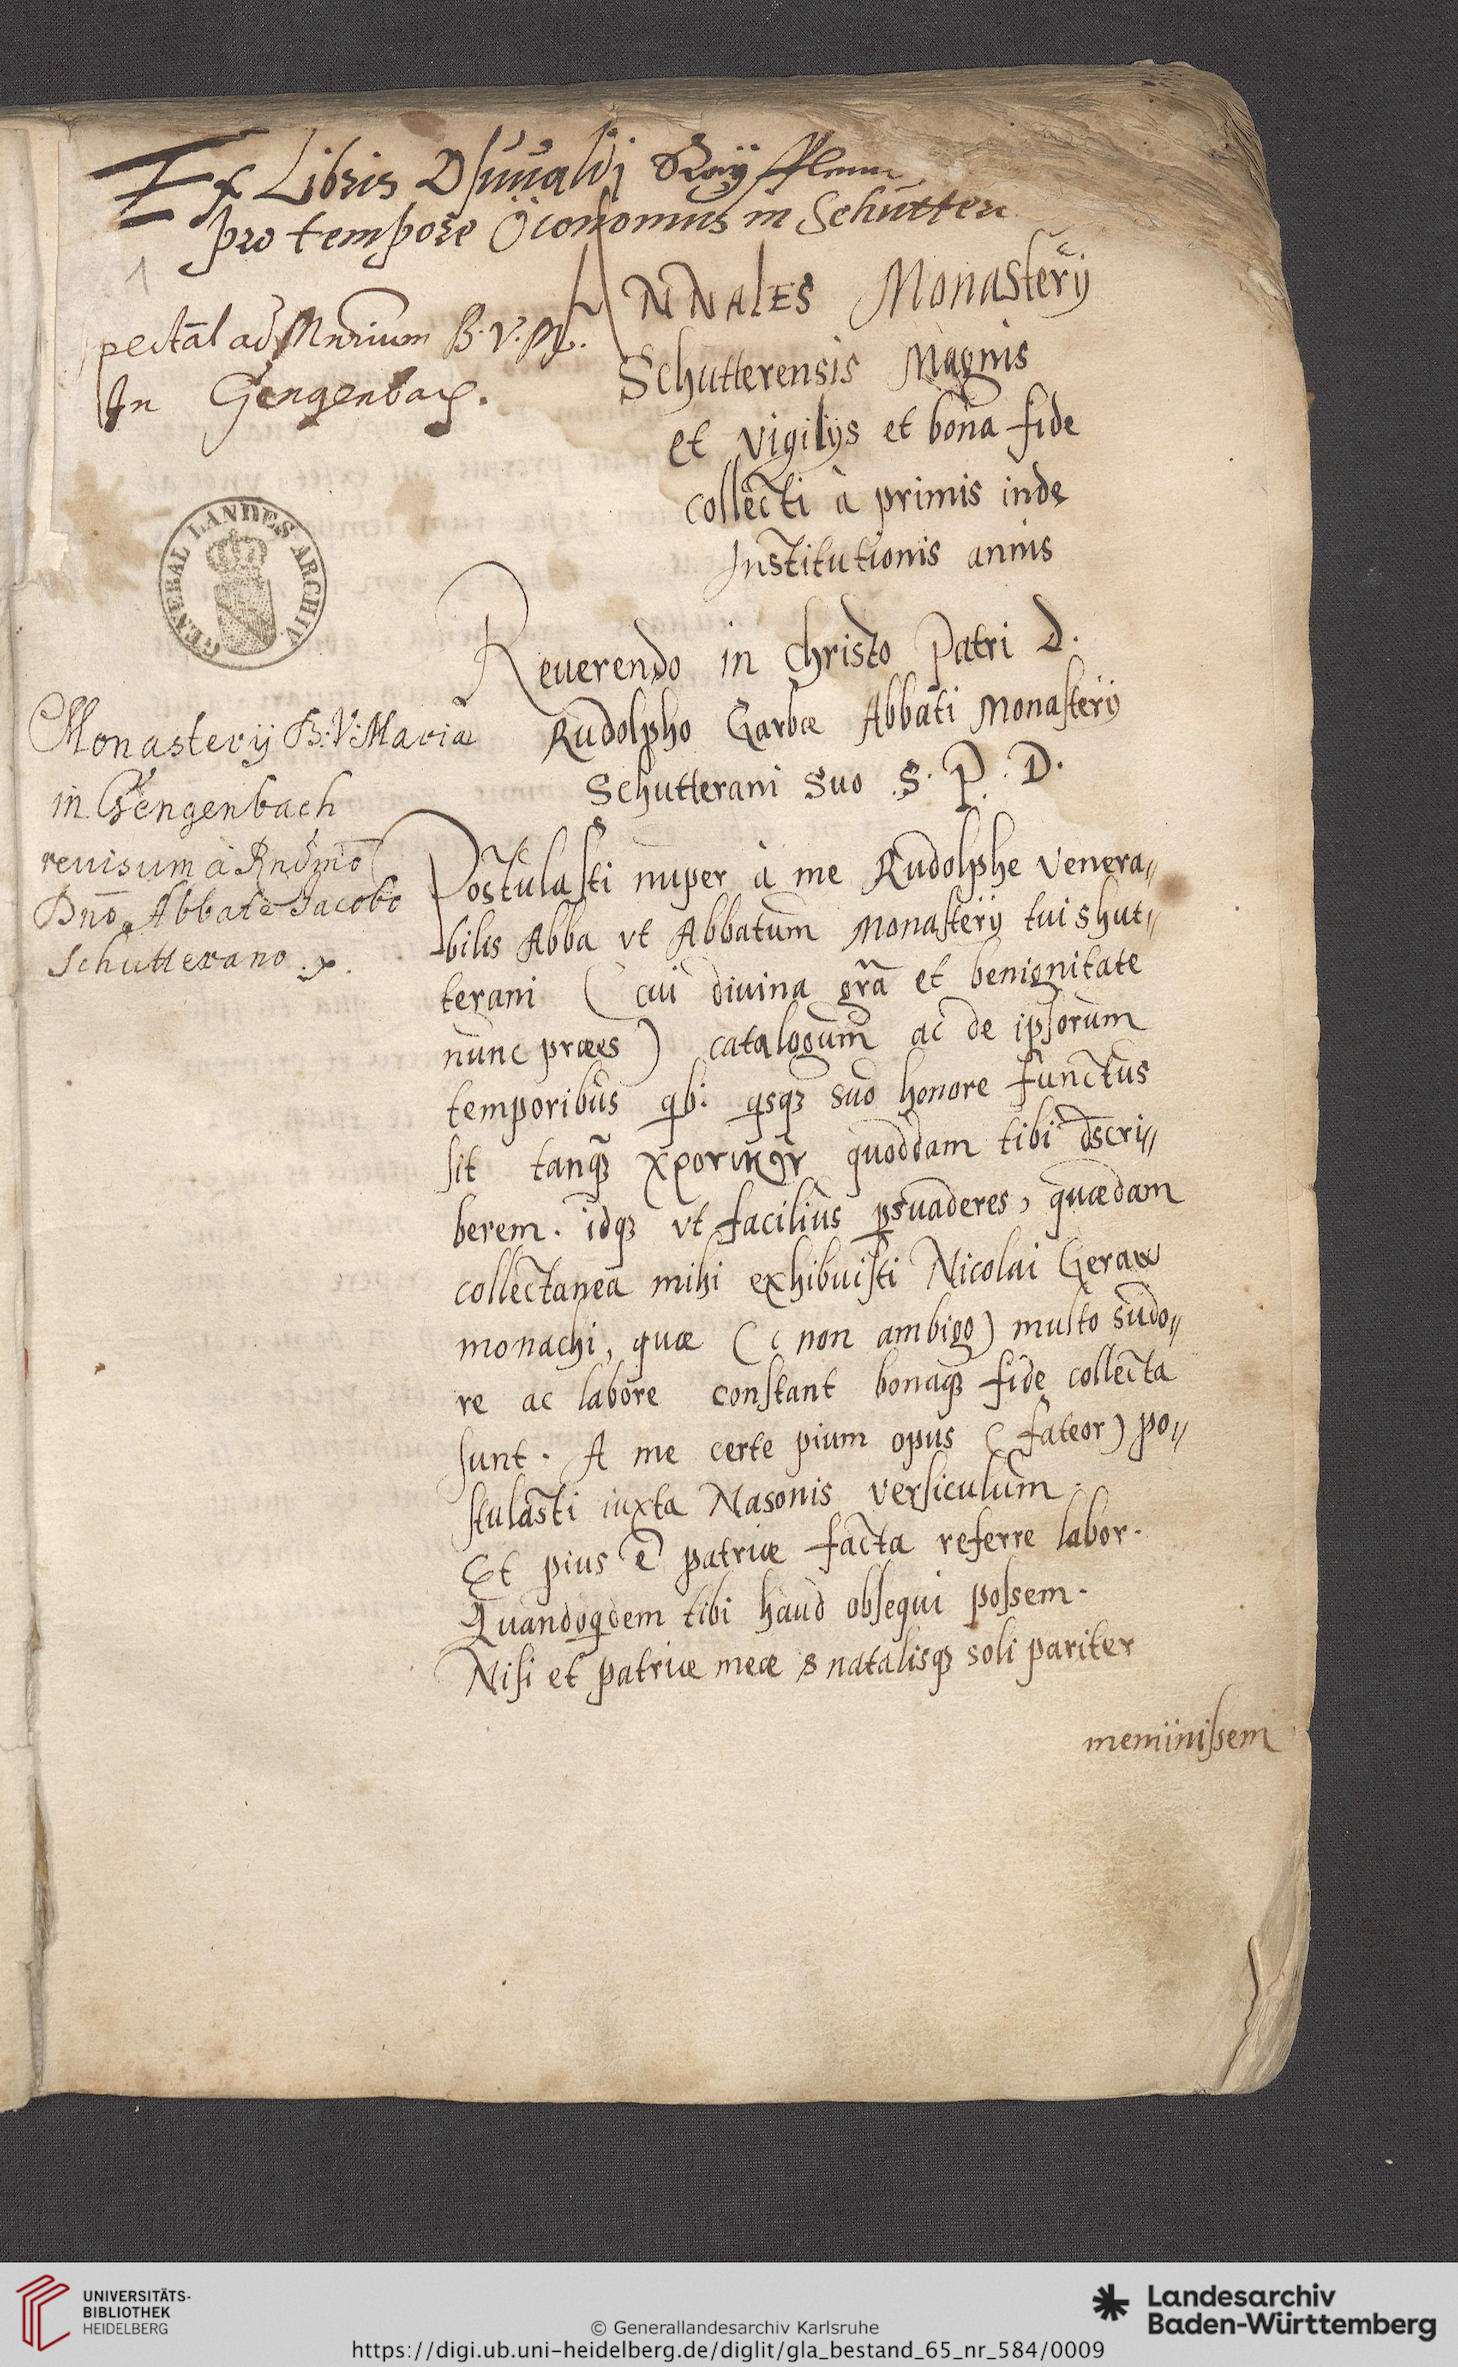 Ex Libris Osuualdi
pro tempore Öconomus in Schuttern
1
ANNALES Monasterij
Schutterensis Magnis
et vigilijs et bona fide
collecti à primis inde
Institutionis annis
spectāt ad Mnrium B. V. M.
In Gengenbach.
GENERAL LANDES ARCHIV
Reuerendo in Christo Patri D.
Rudolpho Garbæ Abbati Monasterij
Schutterani Suo S. P. D.
Monasterij B: V: Mariæ
in Gengenbach
reuisum à Rndmo
Dno Abbate Jacobo
Schutterano
Postulasti nuper à me Rudolphe venera〃
bilis Abba vt Abbatum Monasterij tui shut〃
terani ( cui diuina grã et benignitate
nunc præes ) catalogum ac de ipsorum
temporibus qb: qsqʒ suo honore functus
sit tanqʒ quoddam tibi dscri〃
berem. idqʒ vt facilius psuaderes, quædam
collectanea mihi exhibuisti Nicolai Geraw
monachi, quæ ( c non ambigo) multo sudo〃
re ac labore constant bonaqʒ fide collecta
sunt. A me certe pium opus ( fateor) po〃
stulasti iuxta Nasonis versiculum.
Et pius ē patriæ facta referre labor.
Quandoqdem tibi haud obsequi possem.
Nisi et patriæ meæ & natalisqʒ soli pariter
meminissem
UNIVERSITÄTS-
BIBLIOTHEK
HEIDELBERG
© Generallandesarchiv Karlsruhe
https://digi.ub.uni-heidelberg.de/diglit/gla_bestand_65_nr_584/0009
Landesarchiv
Baden-Württemberg